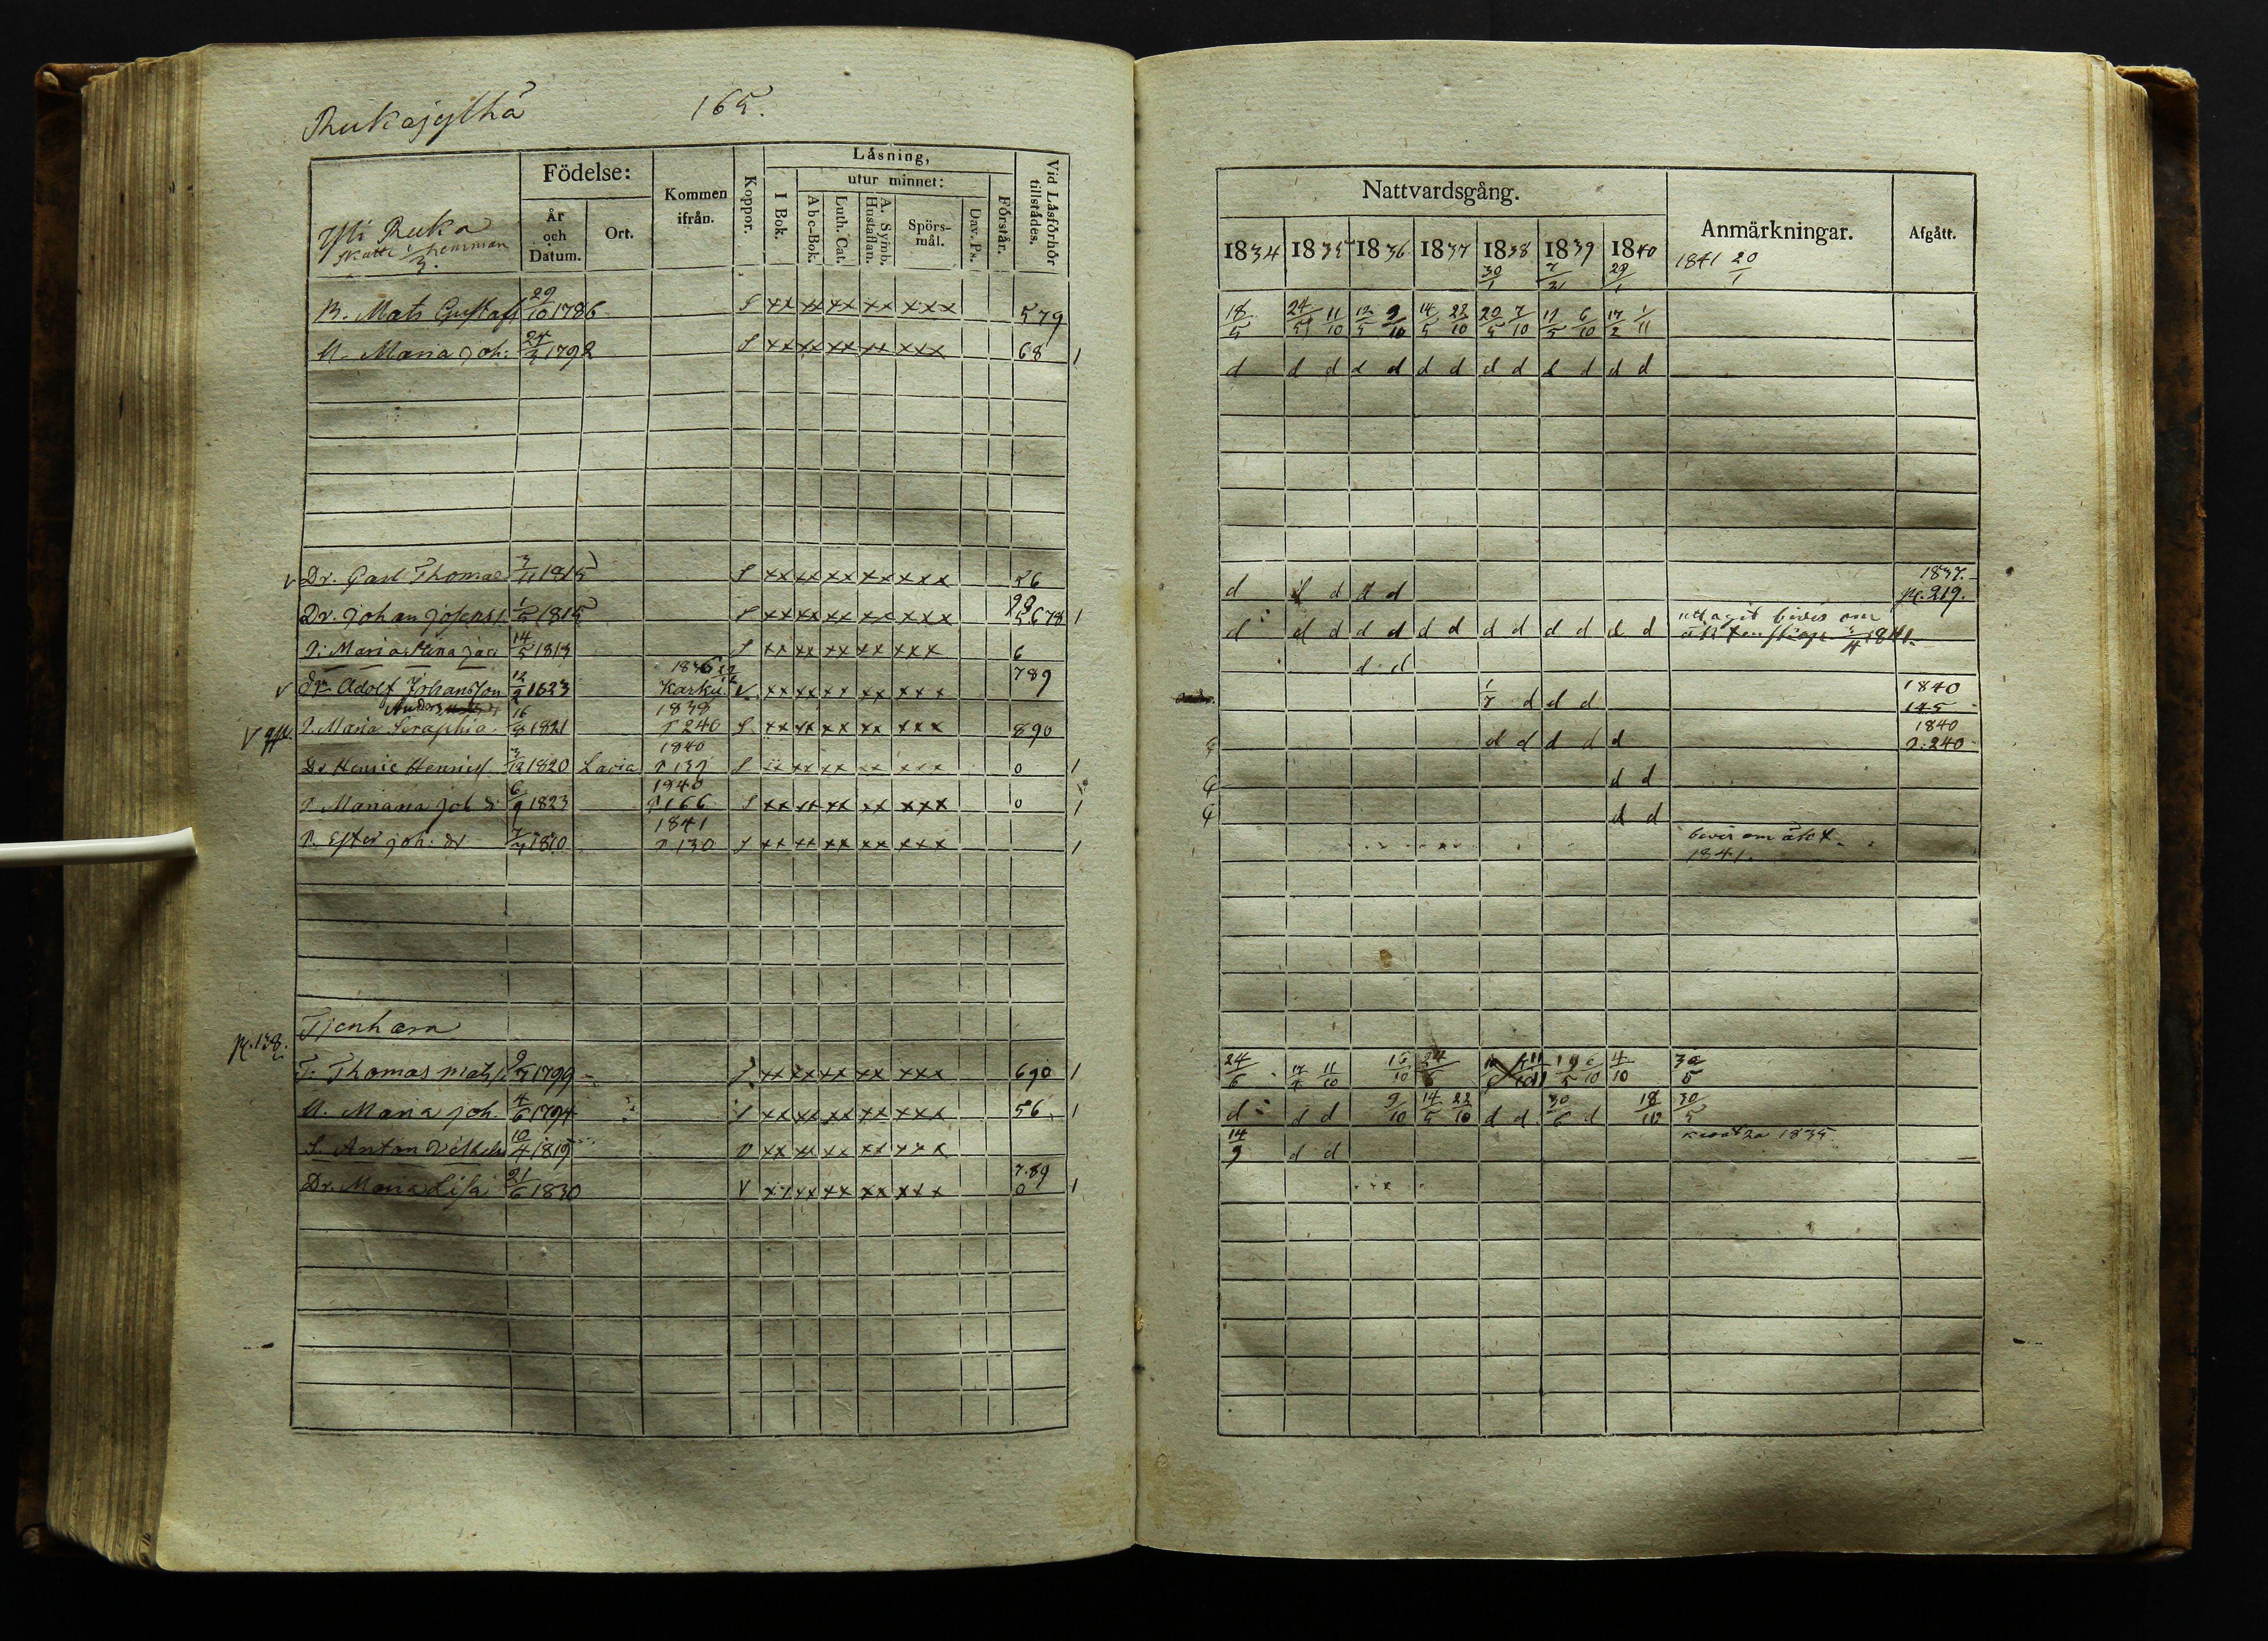 Rukajylhä 165.
Födelse: Kommen ifrån. Koppor. Låsning, utur minnet: Vid Låsförhör tillstådes.
Yli Ruka
Skatte 1/3 hemman
År och Datum. Ort. I Bok. Abc-Bok. Luth. Cat. A. Symb. Hustaflan. Spörs-mål. Dav. Ps. Förstår.
B. Mats Gustafs 29/10 1786 S xx xx xx xx xxx 579
U. Maria Joh: 24/3 1792 S xx xx xx xx xxx 68 1
v Dr. Carl Thomas 3/11 1815 S xx xx xx xx xxx 56
Dr. Johan Josephs 1/2 1815 S xx xx xx xx xxx 5678 90 1
P. Maria Stina 14/5 1813 S xx xx xx xx xxx 6
v Dr. Adolf Johansson 12/9 1823 1836 Karku v. xx xx xx xx xxx 789
V P. Maria Seraphia 16/8 1821 1838 P 240 S xx xx xx xx xxx 890
Dr Henric Henrics 3/12 1820 Lavia 1840 P 139 S xx xx xx xx xxx 0 1
P. Mariana Joh d: 6/9 1823 1840 P 166 S xx xx xx xx xxx 0 1
P. Ester Joh. dr 1810 1841 P 130 S xx xx xx xx xxx 1
Tjenhæra
p. 138.
T. Thomas Mats 9/7 1799 xx xx xx xx xxx 690 1
U. Maria Joh. 4/6 1794 S xx xx xx xx xxx 56 1
S. Anton Vilhelm 10/4 1819 v xx xx xx xx xxx
Dr. Maria Lisa 21/6 1830 v xx xx xx xx xxx 789 0 1
Nattvardsgång. Anmärkningar. Afgått.
1834 1835 1836 1837 1838 1839 1840 1841 20/1
30/1 7/21 29/1
18/5 24/5 11/10 12/5 9/10 14/5 22/10 20/5 7/10 12/5 6/10 17/2 1/11
d d d d d d d d d d d d d
d d d d d 1837. p. 219.
d d d d d d d d d d d d d uttagit bevis om 1841.
d d
1/7 d d d 1840 145
d d d d d 1840 P. 240
d d
d d
bevis om äkt.
1841.
24/6 17/4 11/10 16/10 24/6 6/10 4/10 30/5
d d d 9/10 14/5 22/10 d d 30/6 d 18/12 30/5
14/9 d d 1835